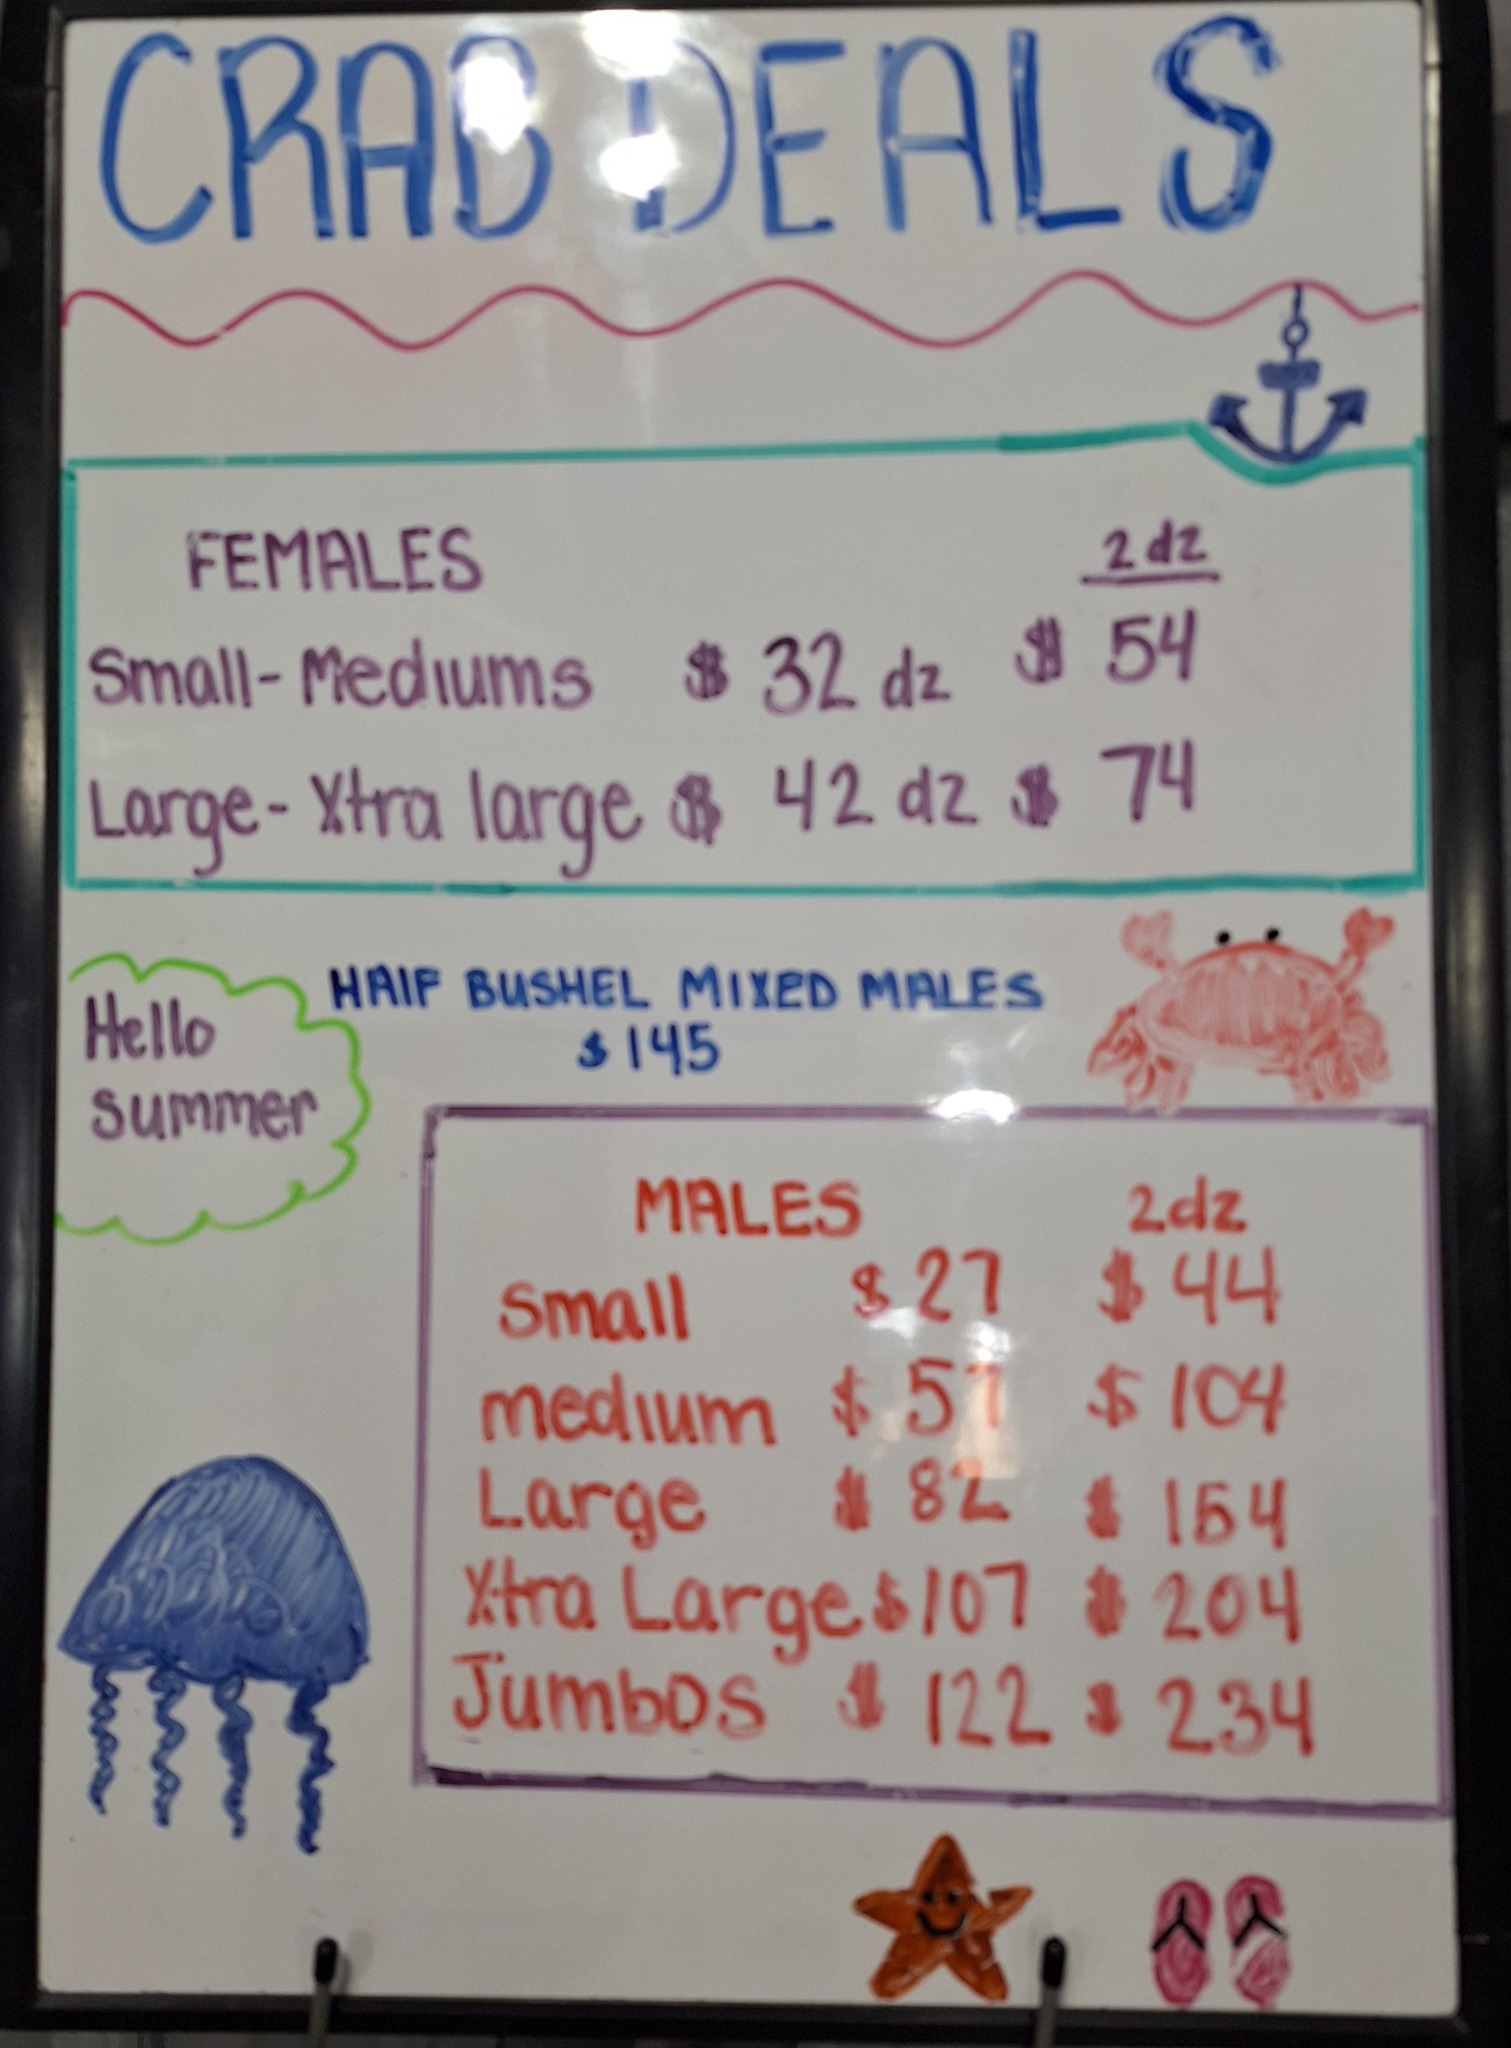 CRAB DEALS
FEMALES 2 dz
Small-Mediums $ 32 dz $ 54
Large-Xtra large $ 42 dz $ 74
Hello
summer
HAlF BUSHEL MIXED MALES
$145
MALES 2dz
Small $27 $44
medium $57 $104
Large $82 $154
Xtra Large $107 $204
Jumbos $122 $234